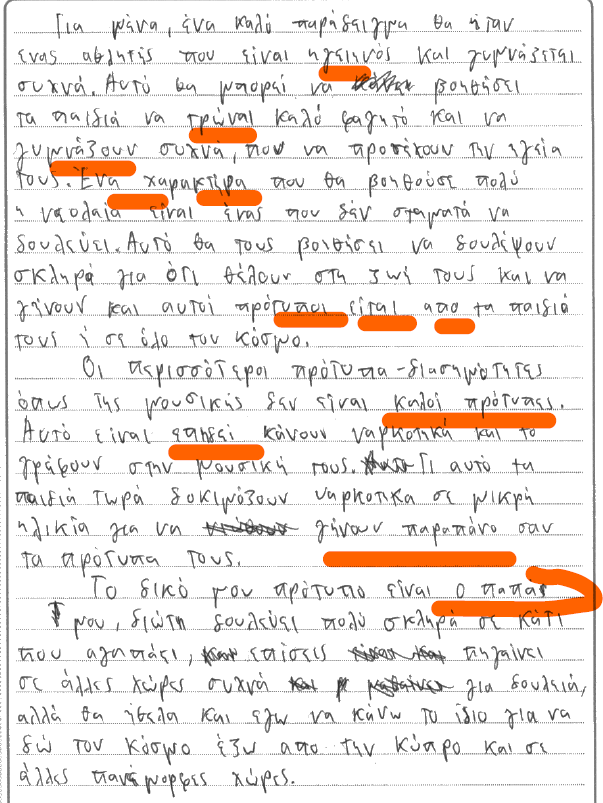 Για μένα, ένα καλό παράδειγμα θα ήταν
ένας αθλητής που είναι ηγειηνός και γυμνάζεται
συχνά. Αυτό θα μπορεί να βοηθήσει
τα παιδιά να τρώναι καλό φαγητό και να
γυμνάζουν συχνά, που να προσέχουν την ηγεία
τους. Ένα χαρακτήρα που θα βοηθούσε πολύ
η νεολαία είναι ένας που δέν σταματά να
δουλεύει. Αυτό θα τους βοηθήσει να δουλέψουν
σκληρά για ότι θέλουν στη ζωή τους και να
γήνουν και αυτοί πρότυποι είται απο τα παιδιά
τους ή σε όλο τον κόσμο.
Οι περισσότεροι πρότυπα-διασημότητες
όπως της μουσικής δεν είναι καλοί πρότυπες.
Αυτό είναι επηδεί κάνουν ναρκοτικά και το
γράφουν στην μουσική τους. Γι αυτό τα
παιδιά τωρά δοκιμάζουν ναρκοτικα σε μικρή
ηλικία για να γήνουν παραπάνο σαν
τα πρότυπα τους.
Το δικό μου πρότυπο είναι ο παπας
μου, διώτη δουλεύει πολύ σκληρά σε κάτι
που αγαπάει, επίσεις πηγαίνει
σε άλλες χώρες συχνά για δουλειά,
αλλά θα ήθελα και εγω να κάνω το ίδιο για να
δώ τον κόσμο έξω απο την Κύπρο και σε
άλλες πανέμορφες χώρες.